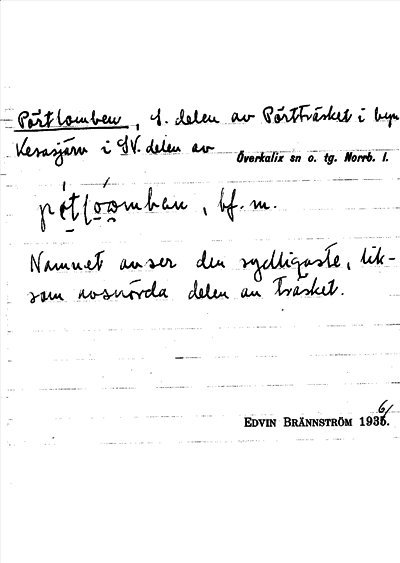 Pörtlomben, S. delen av Pörtträsket i byn
Kesasjärv i SV. delen av
Överkalix sn o. tg. Norrb. l.
bf. m.
Namnet avser den sydligaste, lik-
som avsnörda delen av träsket.
EDVIN BRÄNNSTRÖM 1936.